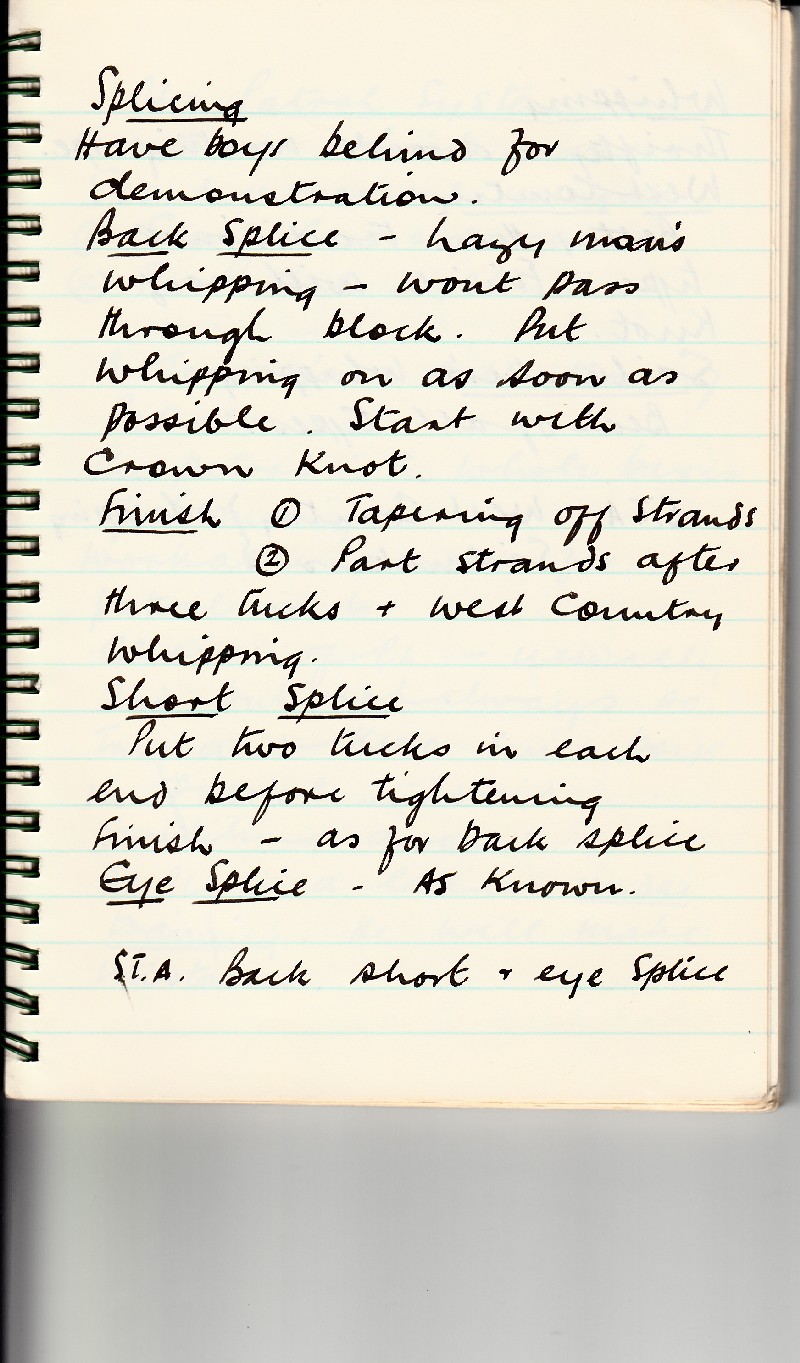 Splicing
Have boys behind for
demonstration.
Back Splice - lazy man's
whipping - wont pass
through block. Put
whipping on as soon as
possible. Start with
Crown Knot.
Finish ① Tapering off strands
② Part strands after
three tucks + West Country
whipping.
Short Splice
Put two tucks in each
end before tightening
Finish - as for back splice
Eye Splice - As Known.
S.T.A. Back short + eye Splice